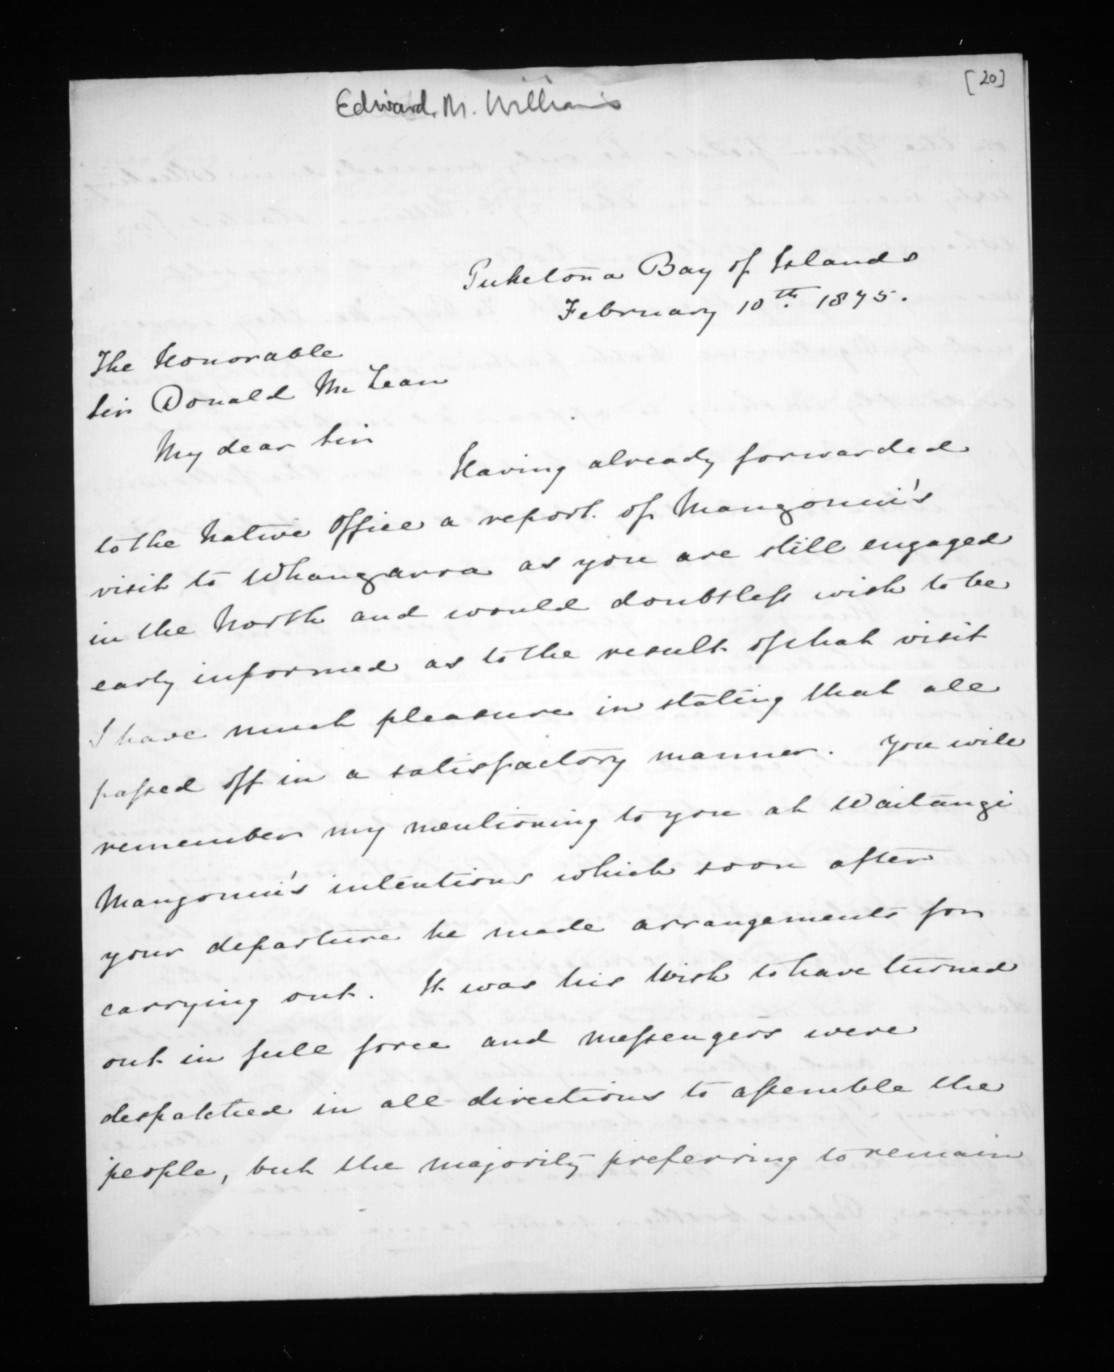 [20]
Edward. M. Williams
Puketona Bay of Islands
February 10th. 1875.
The Honorable
Sir Donald McLean
My dear Sir
Having already forwarded
to the Native Office a report. of Mangonui's
visit to Whangaroa as you are still engaged
in the North and would doubtless wish to be
early informed as to the result of that visit
I have much pleasure in stating that all
passed off in a satisfactory manner. You will
remember my mentioning to you at Waitangi
Mangonui's intentions which soon after
your departure he made arrangements for
carrying out. It was his wish to have turned
out in full force and messengers were
despatched in all directions to assemble the
people, but the majority preferring to remain